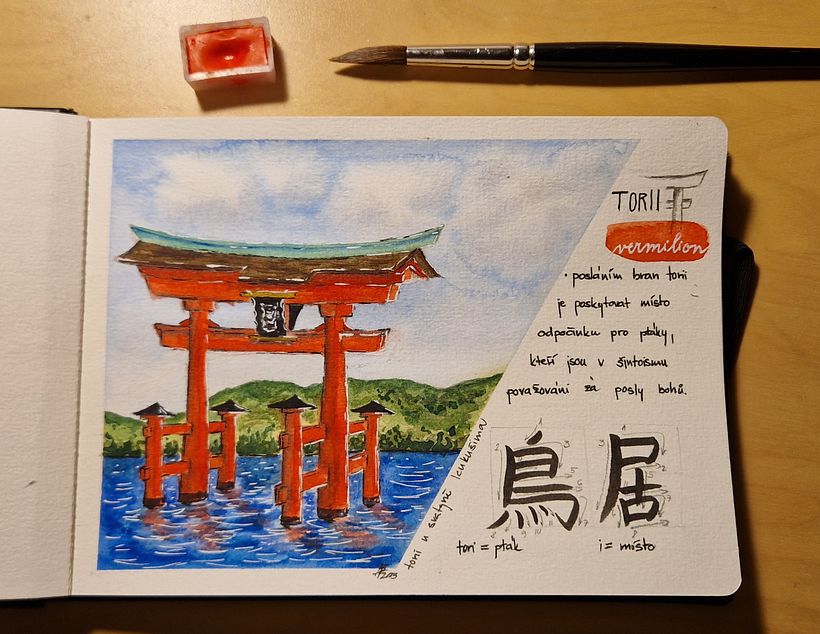 TORII
vermilion
• posláním bran torii
je poskytovat místo
odpočinku pro ptáky,
kteří jsou v šintoismu
považováni za posly bohů.
鳥居
tori = pták
i = místo
torii u svatyně Icukušima